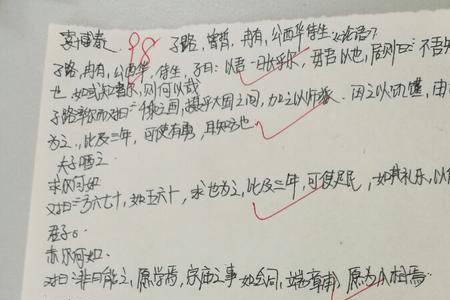 98 子路，曾皙，冉有，公西华侍坐 《论语》
子路，冉有，公西华，侍坐，子曰：以吾一日长乎尔，毋吾以也，居则曰：不吾
也，如或知尔，则何以哉
子路率尔而对曰：千乘之国，摄乎大国之间，加之以师旅，因之以饥馑，由
为之，比及三年，可使有勇，且知方也
夫子哂之
求尔何如
对曰：方六七十，如五六十，求也为之，比及三年，可使足民，如其礼乐，以
君子。
赤尔何如
对曰：非曰能之，愿学焉，宗庙之事 如会同，端章甫，愿为小相焉